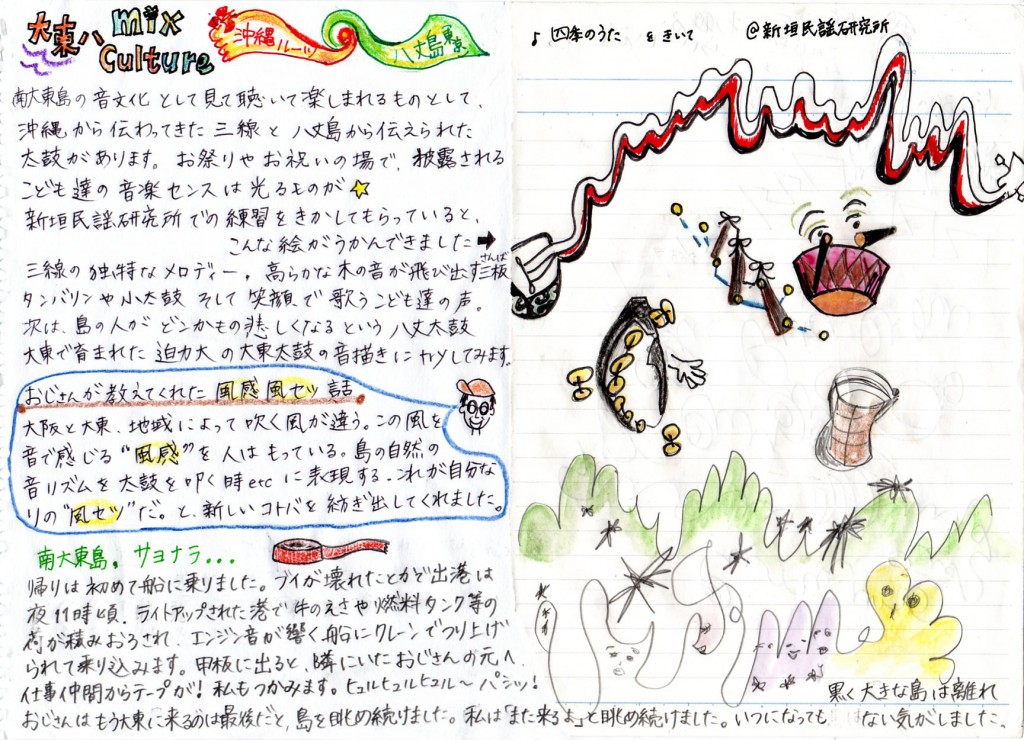 大東ハ mix Culture
沖縄ルーツ
八丈島東京
南大東島の音文化として見て聴いて楽しまれるものとして、
沖縄から伝わってきた三線と八丈島から伝えられた
太鼓があります。お祭りやお祝いの場で、披露される
こども達の音楽センスは光るものが☆
新垣民謡研究所での練習をきかしてもらっていると、
こんな絵がうかんできました➡
三線の独特なメロディー、高らかな木の音が飛び出す三板さんば
タンバリンや小太鼓 そして笑顔で歌うこども達の声。
次は、島の人がどこかもの悲しくなるという八丈太鼓
大東で育まれた迫力大の大東太鼓の音描きにトライしてみます。
おじさんが教えてくれた 風感 風セツ 話
大阪と大東、地域によって吹く風が違う。この風を
音で感じる“風感”を人はもっている。島の自然の
音リズムを太鼓を叩く時etcに表現する。これが自分な
りの“風セツ”だ。と、新しいコトバを紡ぎ出してくれました。
南大東島、サヨナラ...
帰りは初めて船に乗りました。ブイが壊れたとかで出港は
夜11時頃。ライトアップされた港で牛のえさや燃料タンク等の
荷が積みおろされ、エンジン音が響く船にクレーンでつり上げ
られて乗り込みます。甲板に出ると、隣にいたおじさんの元へ、
仕事仲間からテープが!私もつかみます。ヒュルヒュルヒュル〜パシッ!
おじさんはもう大東に来るのは最後だと、島を眺め続けました。私は「また来るよ」と眺め続けました。いつになっても
♪ 四季のうた をきいて @新垣民謡研究所
黒く大きな島は離れ
ない気がしました。